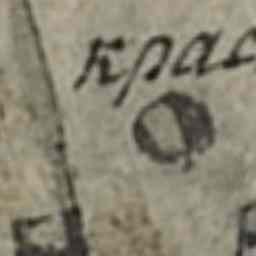 крас